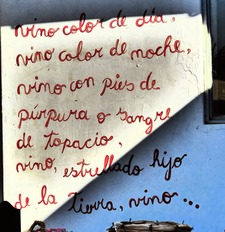 vino color de día,
vino color de noche,
vino con pies de
púrpura o sangre
de topacio,
vino, estrellado hijo
de la tierra, vino...